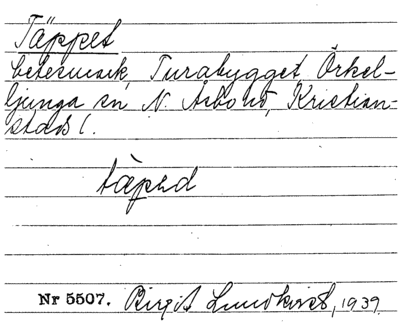 Täppet
betesmark, Turabygget, Örkel-
ljunga sn, N. Åsbo hd, Kristian-
stads l.
täpəd
Nr 5507. Birgit Lundkvist, 1939.